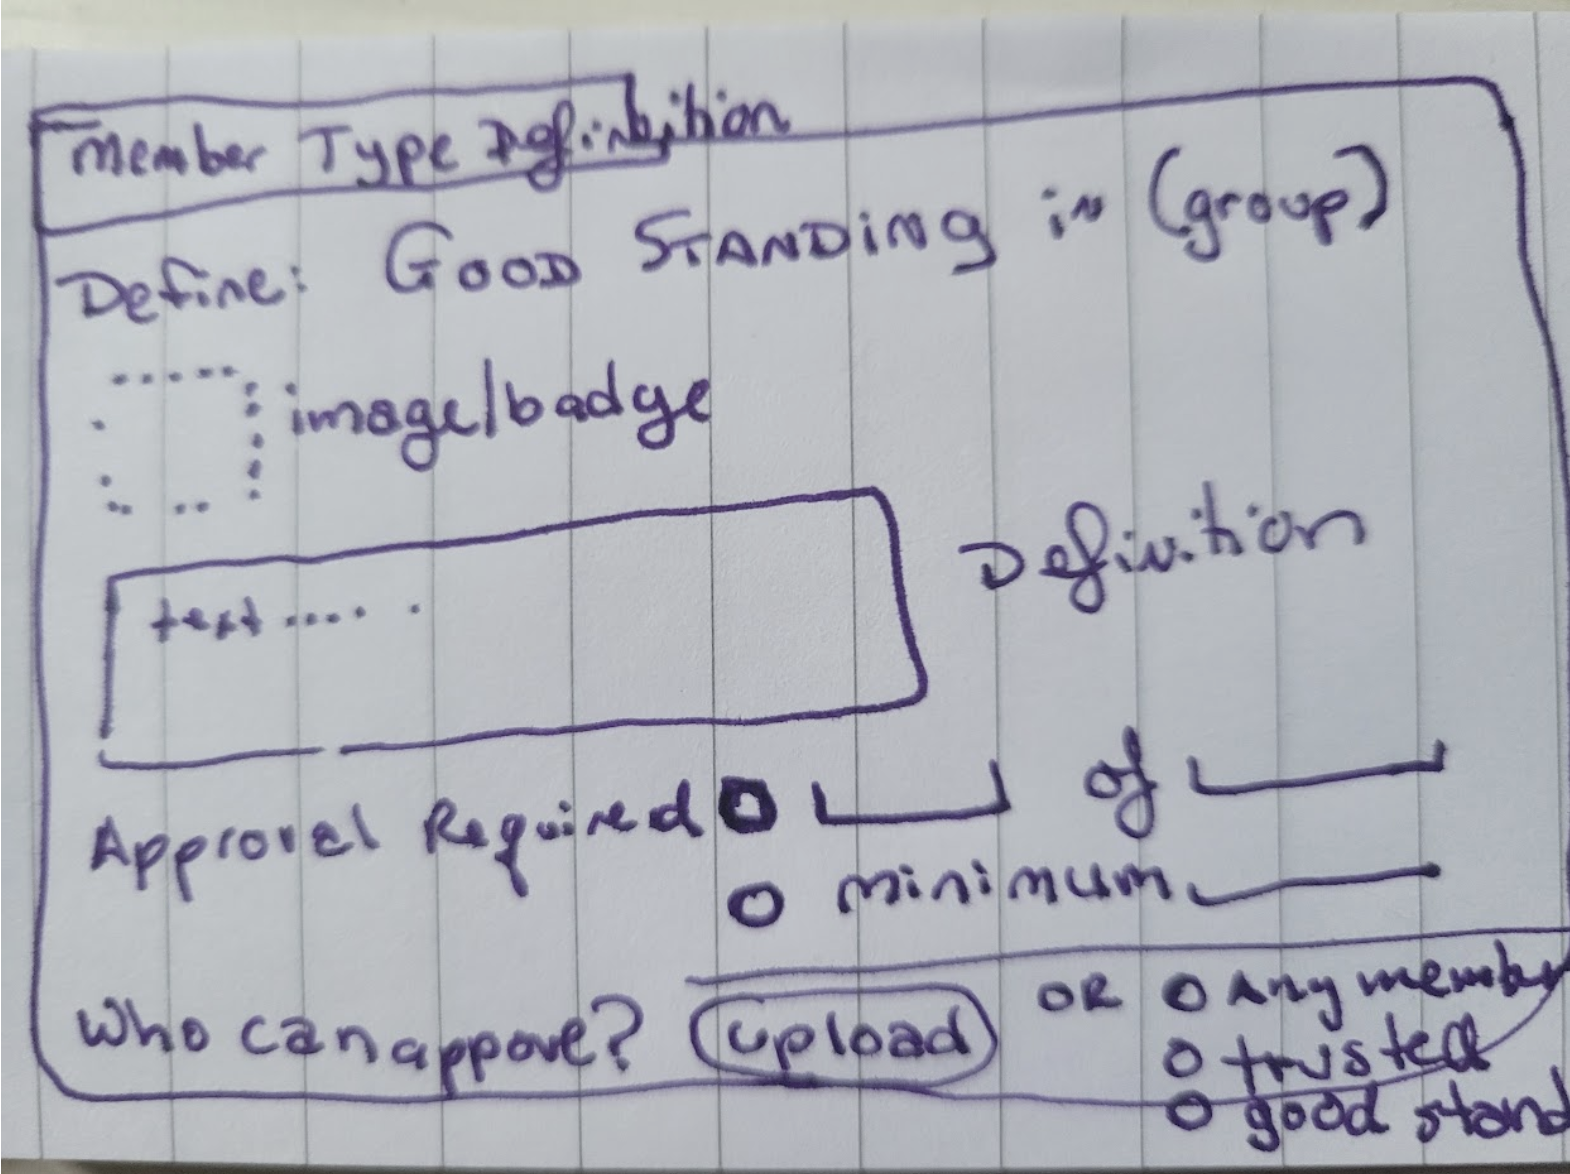 Member Type Definition
Define: GOOD STANDING in (group)
image/badge
text..... .
Definition
Approval Required of
minimum
Who can appove? upload OR Any member
trusted
good stand